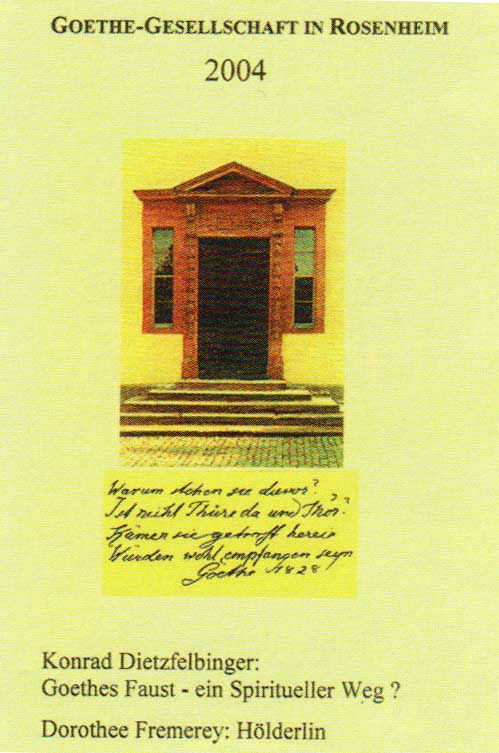 GOETHE-GESELLSCHAFT IN ROSENHEIM
2004
Warum stehen sie davor?
Ist nicht Thüre da und Thor?
Kämen sie getrost herein
Würden wohl empfangen seyn
Goethe 1828
Konrad Dietzfelbinger:
Goethes Faust - ein Spiritueller Weg ?
Dorothee Fremerey: Hölderlin